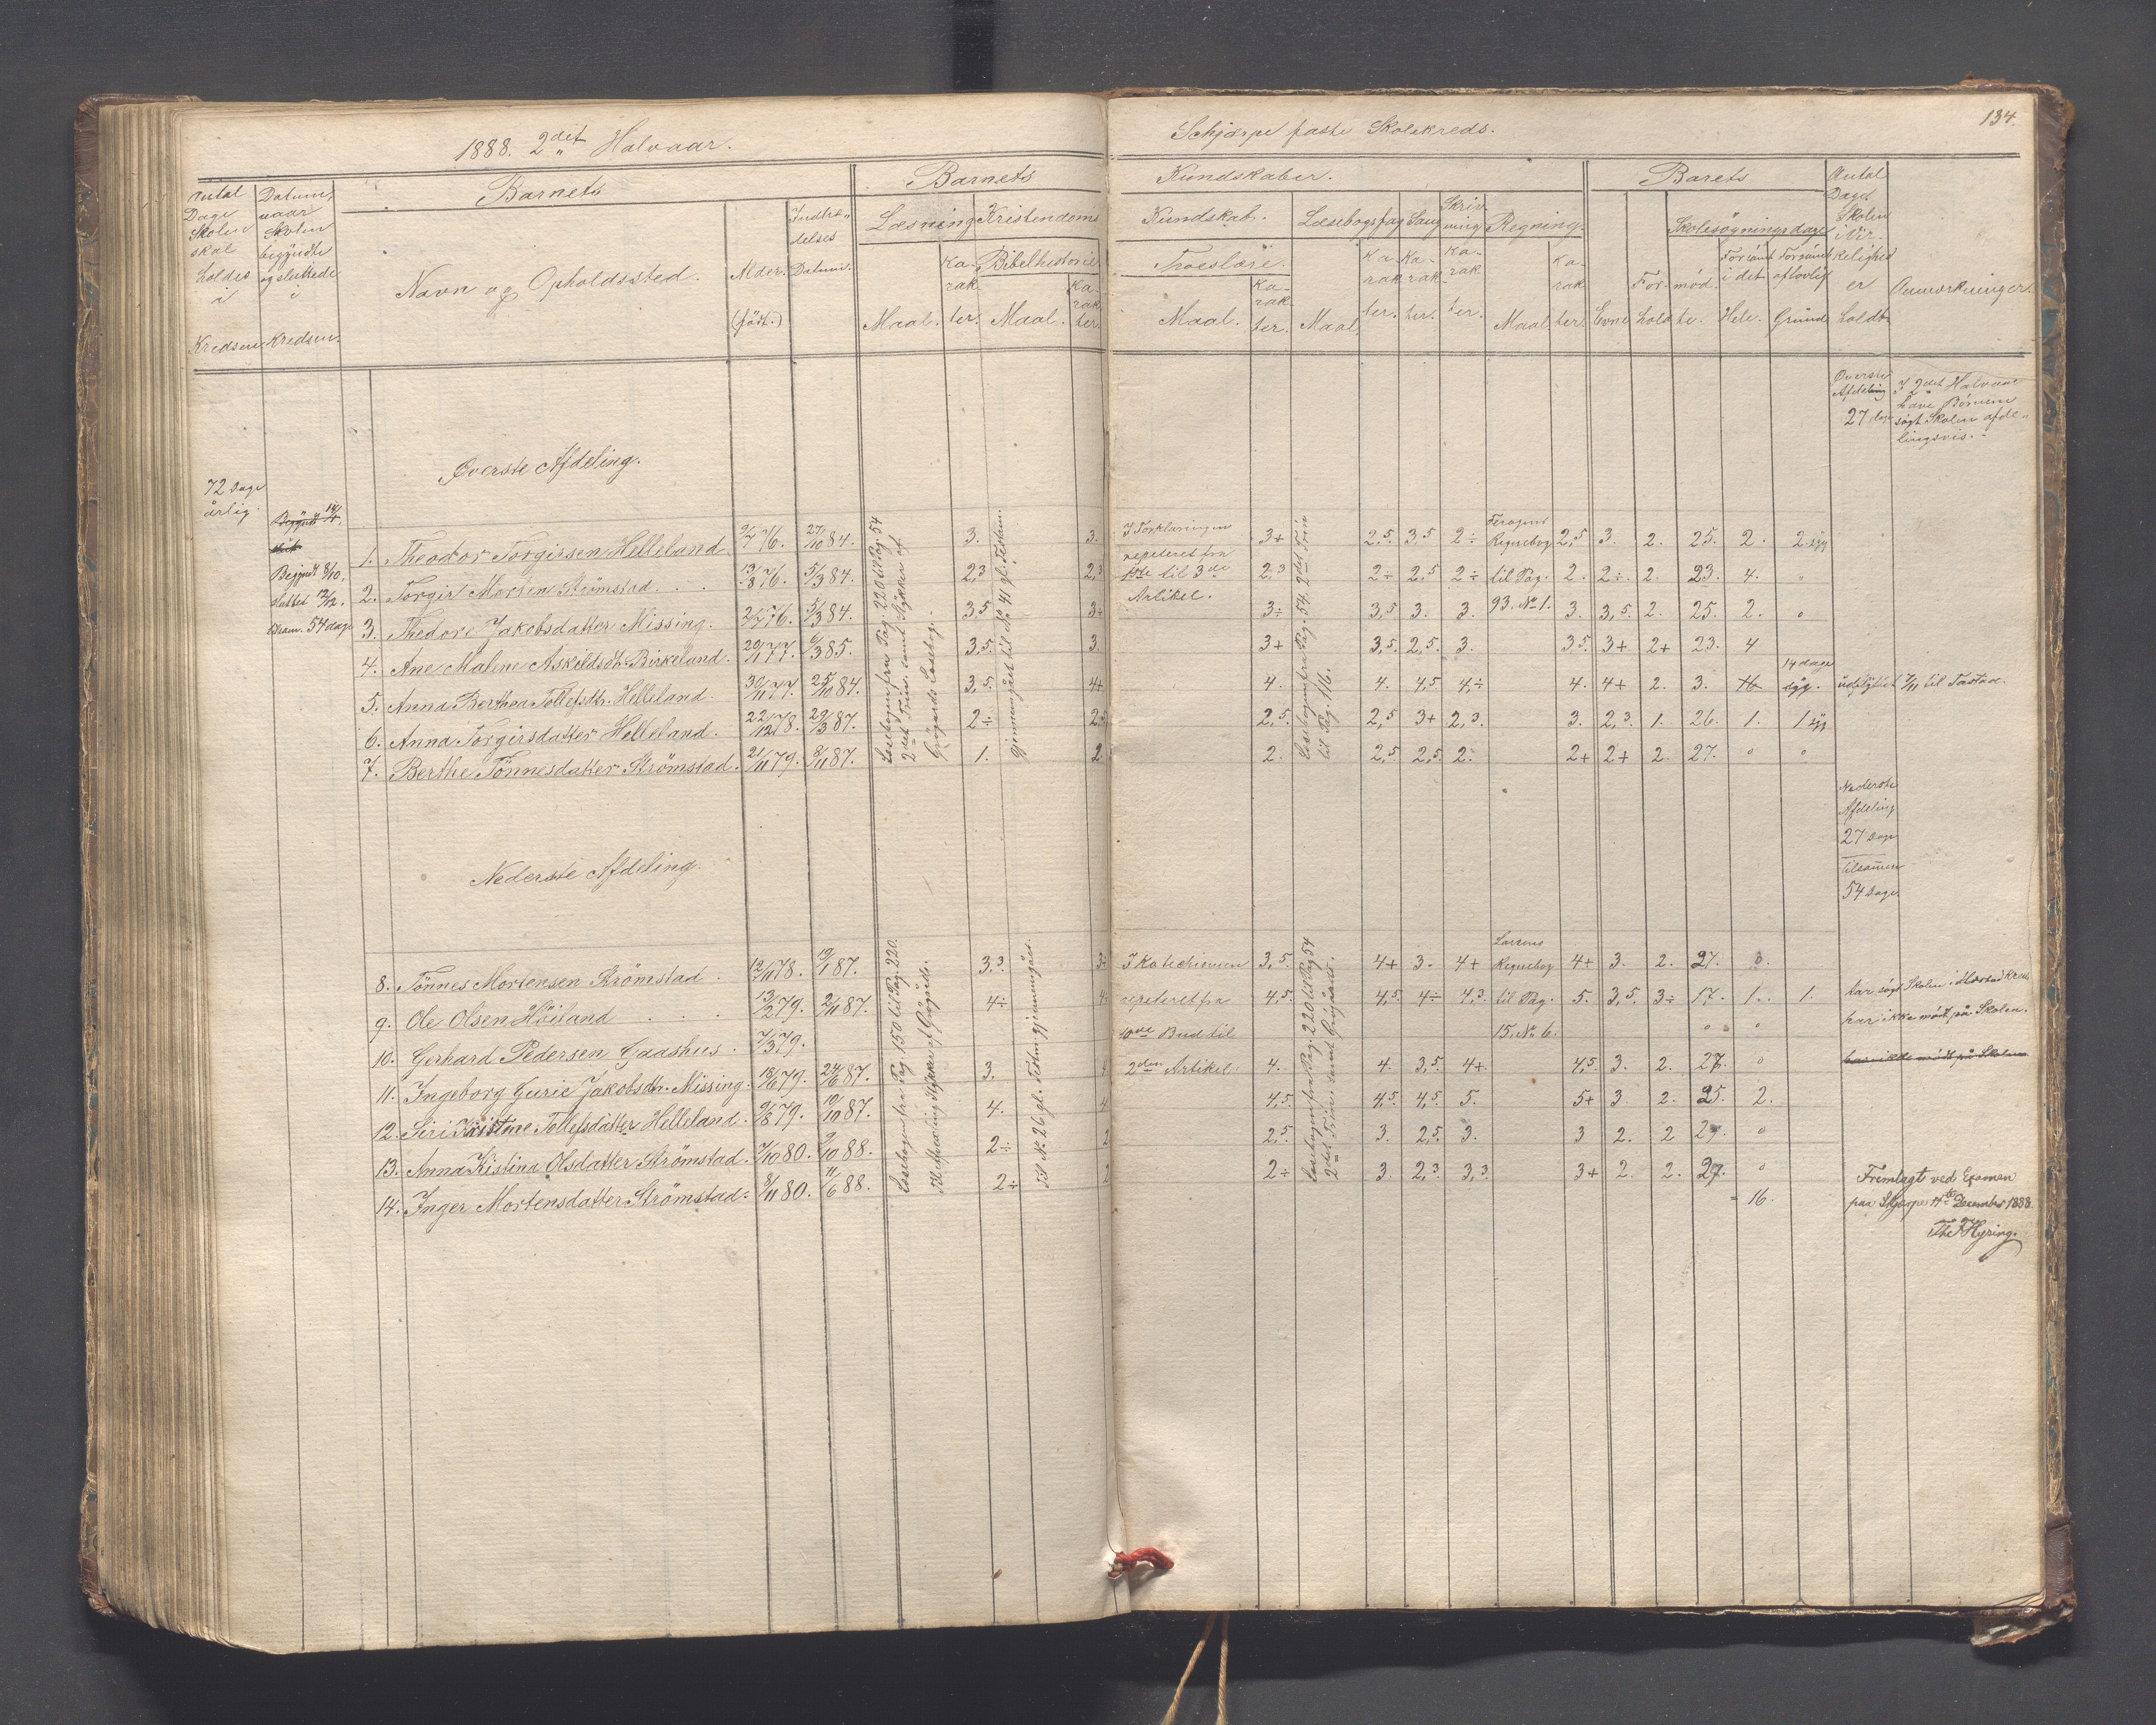 1888. 2det Halvaar.
Schjærpe faste Skolekreds.
134.
Antal Dage Skolen skal holdes i Kredsen
Datum, naar Skolen begyndte og sluttede i Kredsen.
Barnets
Navn og Opholdssted.
Alder. (født.)
Indtrædelses Datum.
Barnets
Kundskaber.
Læsning
Maal.
Karakter.
Kristendoms
Kundskab.
Bibelhistorie
Maal.
Karakter.
Troeslære.
Maal.
Karakter.
Læsebogsfag
Maal
Karakter.
Sang
Karakter.
Skrivning
Karakter.
Regning.
Maal
Karakter.
Barets
Evne
Forhold
Skolesøgningsdage
mødte.
Forsømt i det Hele.
Forsømt af lovlig Grund
Antal Dage Skolen i Virkelighed er holdt.
Anmærkninger.
Øverste Afdeling
27 dage
I 2det Halvaar
have Børnene
søgt Skolen afde-
lingsvis.
Øverste Afdeling.
72 Dage
årlig.
Begyndt
Begyndt 8/10,
sluttet 12/12.
54 dage
Læsebogen fra Pag. 220 til Pag. 54
2det Trin. samt Stykker af
Griigaards Læsebog.
gjennemgået til No. 41 gl. Testam.
I Forklaringen
repeteret fra
1ste til 3die
Artikel.
Læsebogen fra Pag. 54. 2det Trin
til Pag. 116.
Regnebog
til Pag.
93. No 1.
1. Theodor Torgirsen Helleland. 9/7 76. 27/10 84. 3. 3. 3+ 2,5. 3,5 2÷ 2,5 3. 2. 25. 2. 2 syg
2. Torgir Morsen Strömstad. . . 13/8 76. 5/3 84. 2,3 2,3 2,3 2÷ 2,5 2÷ 2. 2÷. 2. 23. 4. "
3. Thedore Jakobsdatter Missing. 2/7 76. 5/3 84. 3,5 3÷ 3÷ 3,5 3. 3. 3. 3,5. 2. 25. 2. "
4. Ane Malene Askildsdt. Birkeland. 20/1 77. 6/3 85. 3,5. 3. 3+ 3,5. 2,5. 3. 3,5. 3+ 2+ 23. 4
5. Anna Berthea Tollefsdtr. Helleland 30/11 77. 25/10 84. 3,5. 4+ 4. 4. 4,5 4,÷ 4. 4+ 2. 3. 14 dage syg. udflyttet 7/11 til Tastad.
6. Anna Torgirsdatter Helleland. 22/12 78. 29/3 87. 2÷ 2,5 2,5. 2,5 3+ 2,3. 3. 2,3. 1. 26. 1. 1 syg
7. Berthe Tönnesdatter Strömstad. 21/11 79. 8/11 87. 1. 2. 2. 2,5 2,5 2. 2+ 2+ 2. 27. " "
Nederste
Afdeling
27 Dage
tilsamen
54 Dage
Nederste Afdeling.
Læsebogen fra Pag. 150 til Pag. 220.
Til No. 26 gl. Testm. gjennemgået.
I Katechismen
repeteret fra
10de Bud til
2den Artikel.
Læsebogen fra Pag. 220 til Pag 54
Larsens
Regnebog
til Pag.
15. No 6.
8. Tönnes Mortensen Strömstad . 12/11 78. 19/1 87. 3,3. 3÷ 3,5. 4+ 3. 4+ 4+ 3. 2. 27. 0.
9. Ole Olsen Höiland . . . 13/2 79. 2/11 87. 4÷ 4. 4,5. 4,5. 4÷ 4,3. 5. 3,5. 3÷ 17. 1. 1. har søgt Skolen i Kreds
10. Gerhard Pedersen Gaashus . 7/3 79. " " har ikke mødt på Skolen.
11. Ingeborg Gurie Jakobsdtr. Missing. 18/6 79. 24/6 87. 3. 4. 4. 3,5. 4+. 4,5. 3. 2. 27. " har ikke mødt på Skolen
12. Siri Kristine Tollefsdatter Helleland. 9/8 79. 10/10 87. 4. 4. 4,5. 4,5. 4,5. 5. 5+ 3. 2. 25. 2.
13. Anna Kistina Olsdatter Strömstad. 7/10 80. 9/10 88. 2÷ 2 2,5. 3. 2,5. 3. 3 2. 2 27. "
14. Inger Mortensdatter Strömstad. 8/11 80. 11/6 88. 2÷ 2 2÷ 3. 2,3 3,3. 3+ 2. 2. 27. "
16.
Fremlagt ved Examen
paa Skjærpe 14de December 1888.